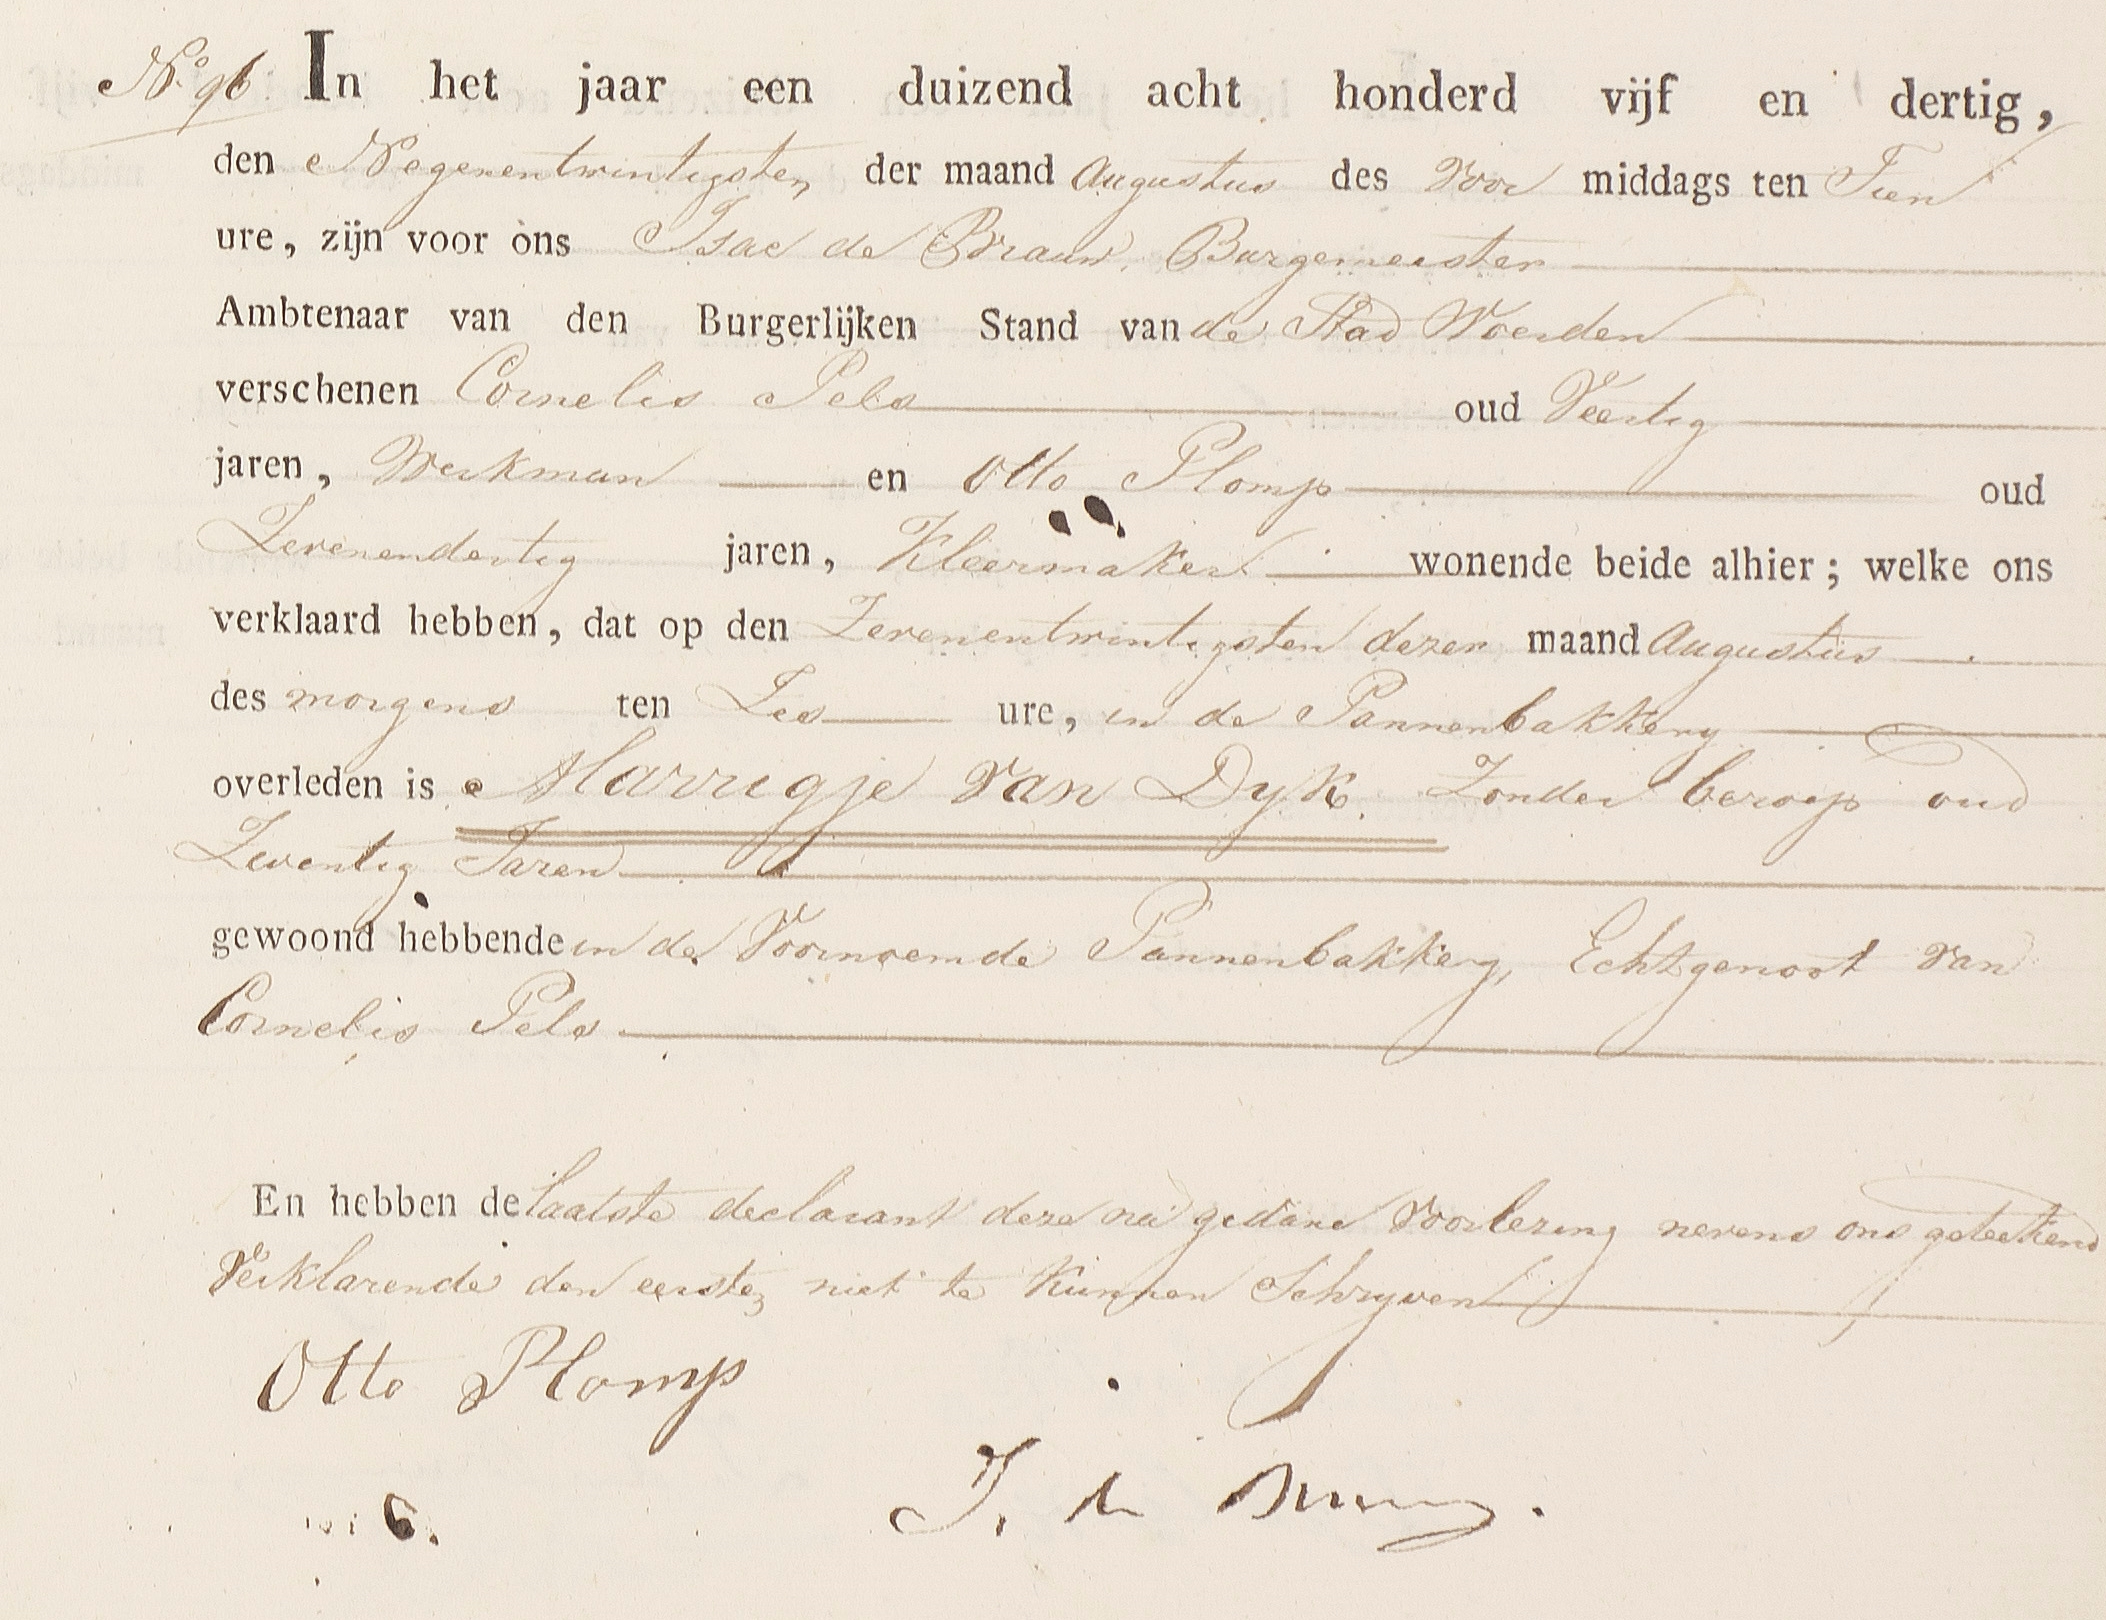 No. 96 In het jaar een duizend acht honderd vijf en dertig,
den Negenentwintigsten der maand Augustus des Voor middags ten Tien
ure, zijn voor ons Isac de Brauw, Burgemeester
Ambtenaar van den Burgerlijken Stand van de Stad Woerden
verschenen Cornelis Pels oud Veertig
jaren, Werkman en Otto Plomp oud
Zevenendertig jaren, Kleermaker wonende beide alhier; welke ons
verklaard hebben, dat op den Zevenentwintigsten dezer maand Augustus
des morgens ten Zes ure, in de Pannenbakkery
overleden is Marrigje van Dyk. Zonder beroep oud
Zeventig Jaren
gewoond hebbende in de Voornoemde Pannenbakkery, Echtgenoot van
Cornelis Pels
En hebben de laatste declarant deze na gedane Voorlezing nevens ons geteekend
Verklarende den eersten niet te kunnen Schryven
Otto Plomp
I. de Brauw.